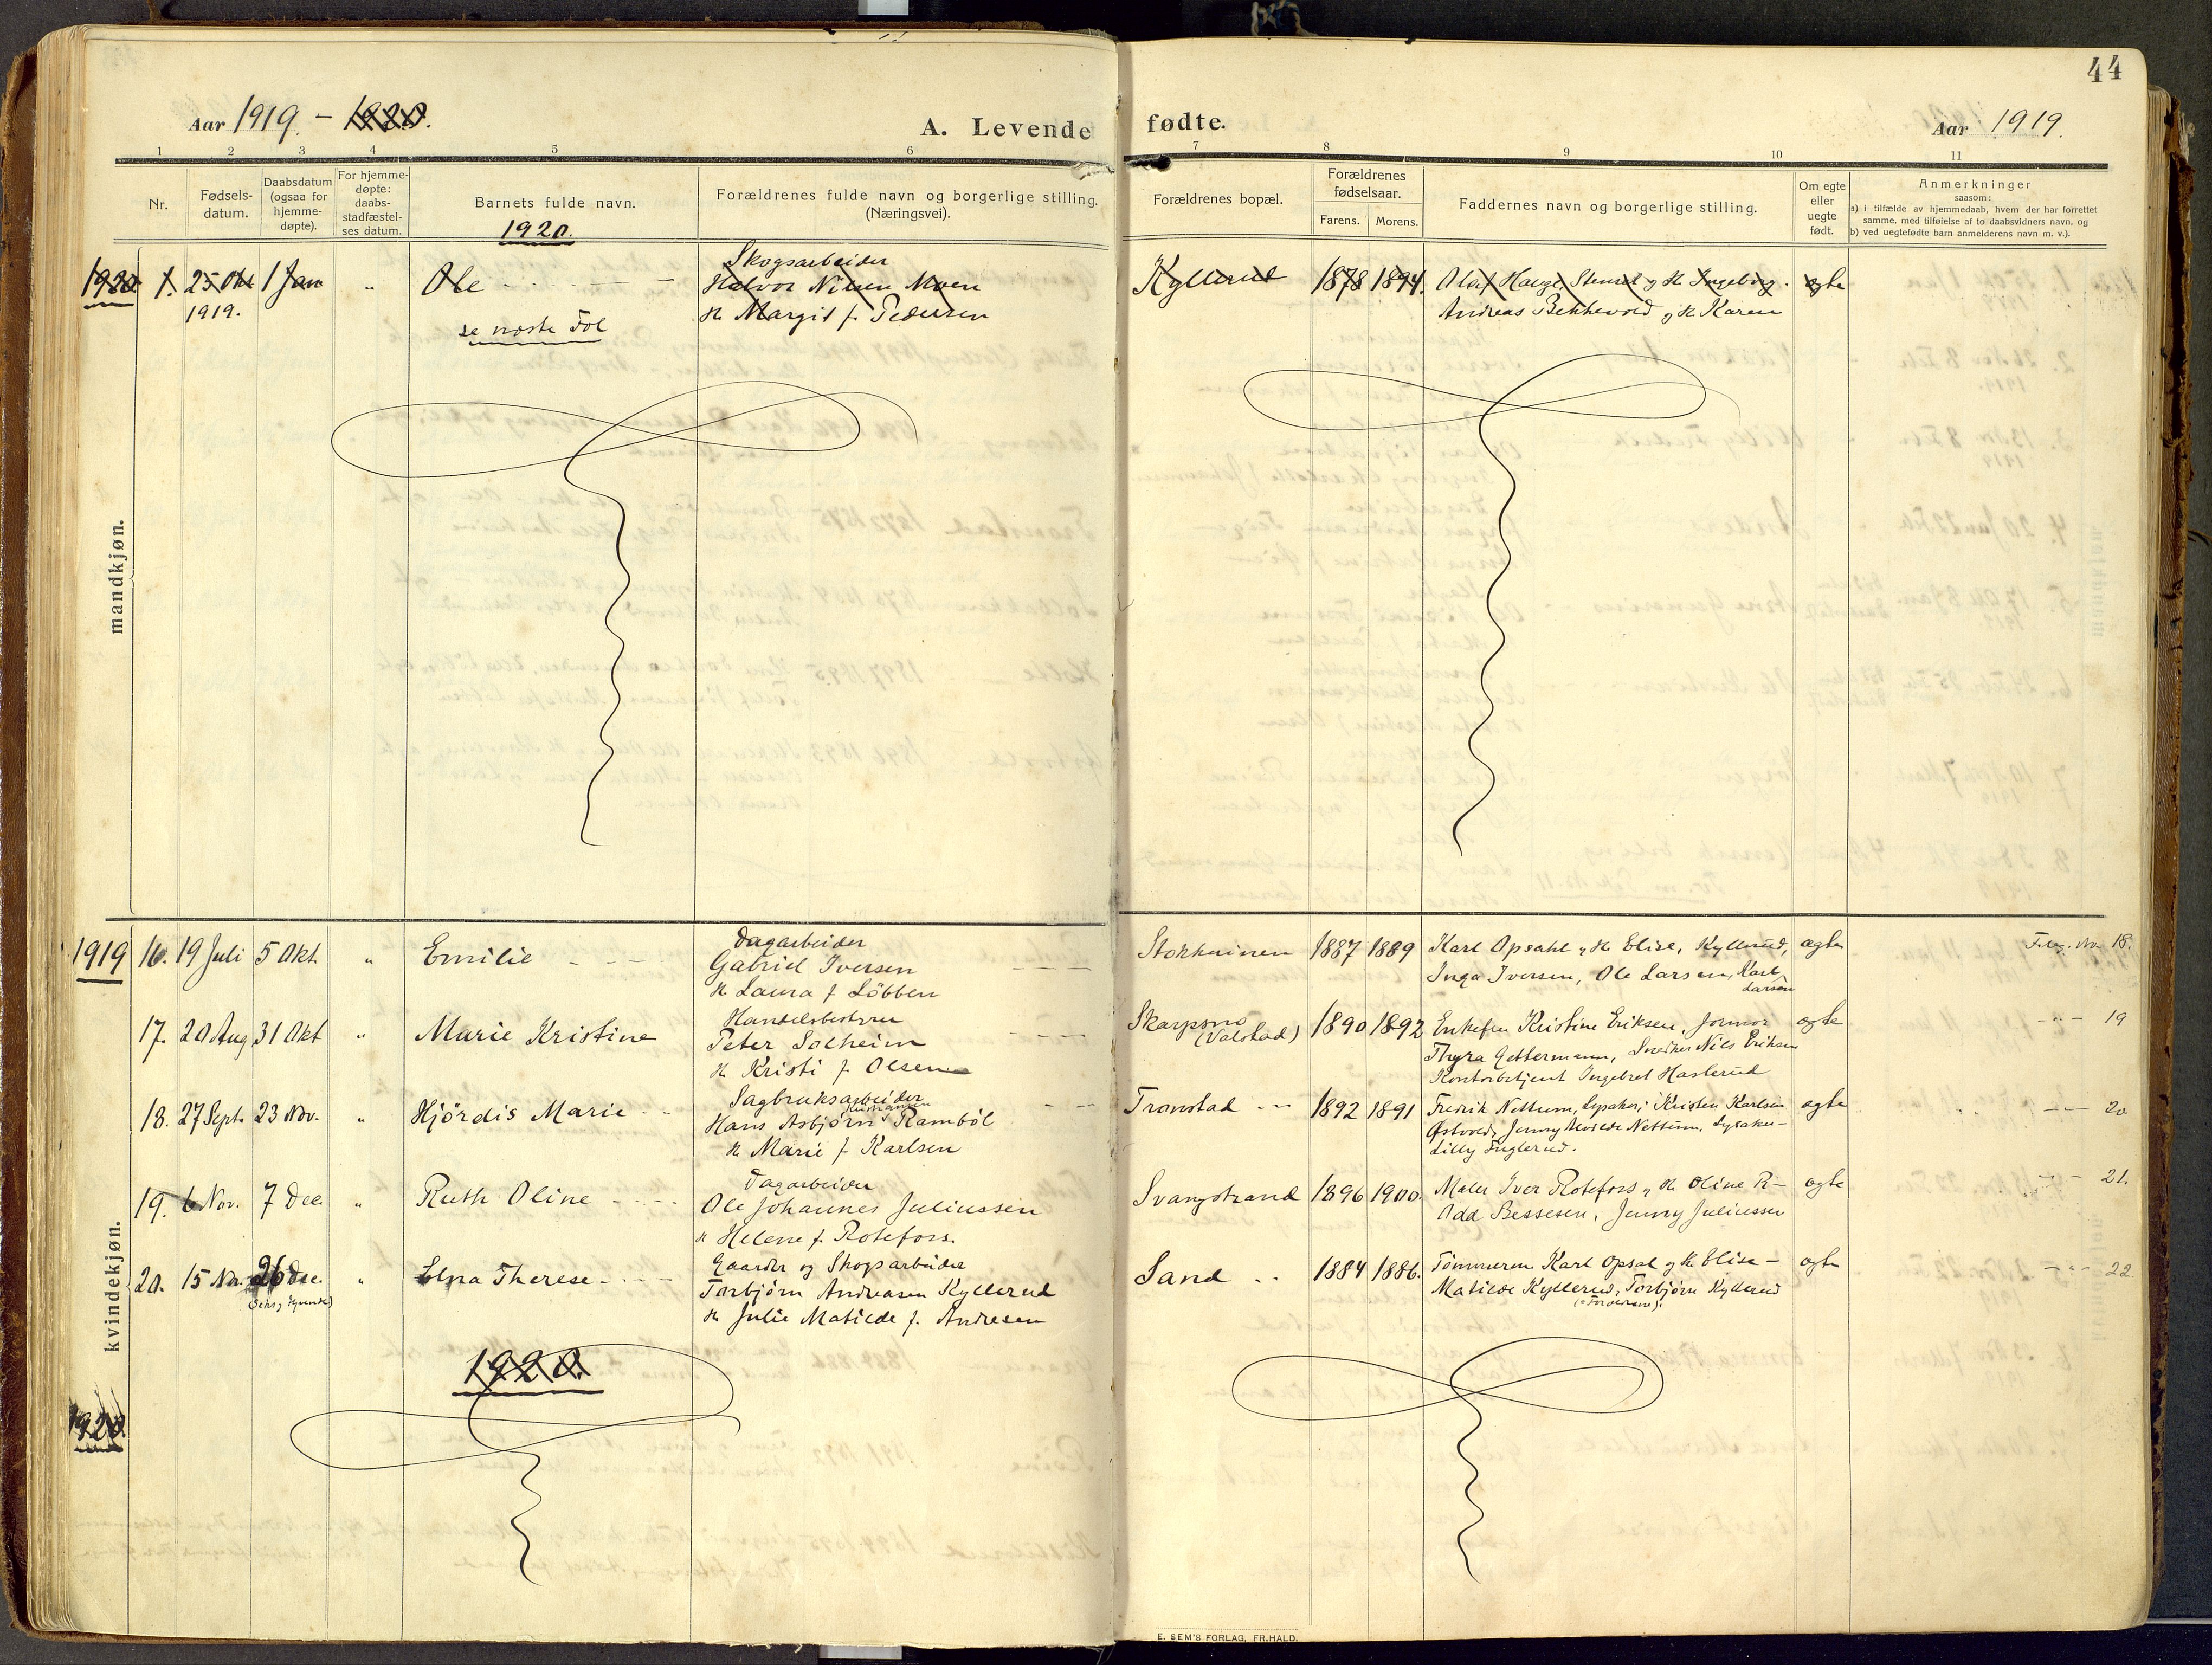 44
Aar 1919. - 1920.
A. Levende fødte.
Aar 1919.
1 2 3 4 5 6 7 8 9 10 11
Nr.
Fødsels-
datum.
Daabsdatum
(ogsaa for
hjemme-
døpte).
For hjemme-
døpte:
daabs-
stadfæstel-
ses datum.
Barnets fulde navn.
1920.
Forældrenes fulde navn og borgerlige stilling.
(Næringsvei).
Forældrenes bopæl.
Forældrenes
fødselsaar.
Farens. Morens.
Faddernes navn og borgerlige stilling.
Om egte
eller
uegte
født.
Anmerkninger
saasom:
a) i tilfælde av hjemmedaab, hvem der har forrettet
samme, med tilføielse af to daabsvidners navn, og
b) ved uegtefødte barn anmelderens navn m. v.).
mandkjøn.
1920 1. 25 Okt 1 Jan " Ole
1919.
se næste Fol
Skogsarbeider
Halvor Nilsen Moen
H. Margit f. Pedersen
Kyllerud 1878 1894.
Olaf Hauge, Stensrud og H. Ingeborg.
Andreas Bekkevold og H. Karen
egte
kvindekjøn.
1919 16. 19 Juli 5 Okt. " Emilie
Dagarbeider
Gabriel Iversen
H. Laura f Løbben
Stokkerinen 1887 1889
Karl Opsahl og H. Elise, Kyllerud,
Inga Iversen, Ole Larsen, Karl
Larsen
egte
Fileg. No 18.
17. 20 Aug 31 Okt " Marie Kristine
Handelsbestyrer
Peter Solheim
H. Kristi f. Olsen
Skarpsno
(Valstad)
1890 1892
Enkefru Kristine Eriksen, Jormor
Thyra Gettermann, Snedker Nils Eriksen
Kontorbetjent Ingebret Haslerud
egte
-"- 19
18. 27 Sept. 23 Nov. " Hjördis Marie
Sagbruksarbeider
Kristiansen
Hans Asbjörn Ramböl
H. Marie f Karlsen
Tronstad 1892 1891
Fredrik Nettum, Lysaker, Kristen Karlsen
Østvold, Jenny Alvilde Nettum, Lysaker -
Lilly Fuglerud.
egte
-"- 20
19. 6 Nov. 7 Dec. " Ruth Oline
Dagarbeider
Ole Johannes Juliussen
H Helene f. Rotefoss.
Svangstrand 1896 1900.
Maler Iver Rotefoss og H. Oline R-
Odd Bessesen, Jenny Juliussen
egte
-"- 21.
20. 15 Nov. 26 Dec. " Elna Therese
(Seks og tyvende)
Gaardbr og Skogsarbeider
Torbjörn Andreasen Kyllerud
H. Julie Matilde f. Andresen
Sand 1884 1886.
Tömmerm Karl Opsal og H. Elise -
Matilde Kyllerud, Torbjörn Kyllerud
(= Forældrene).
egte
-"- 22.
1920.
1920.
E. SEM'S FORLAG, FR.HALD.